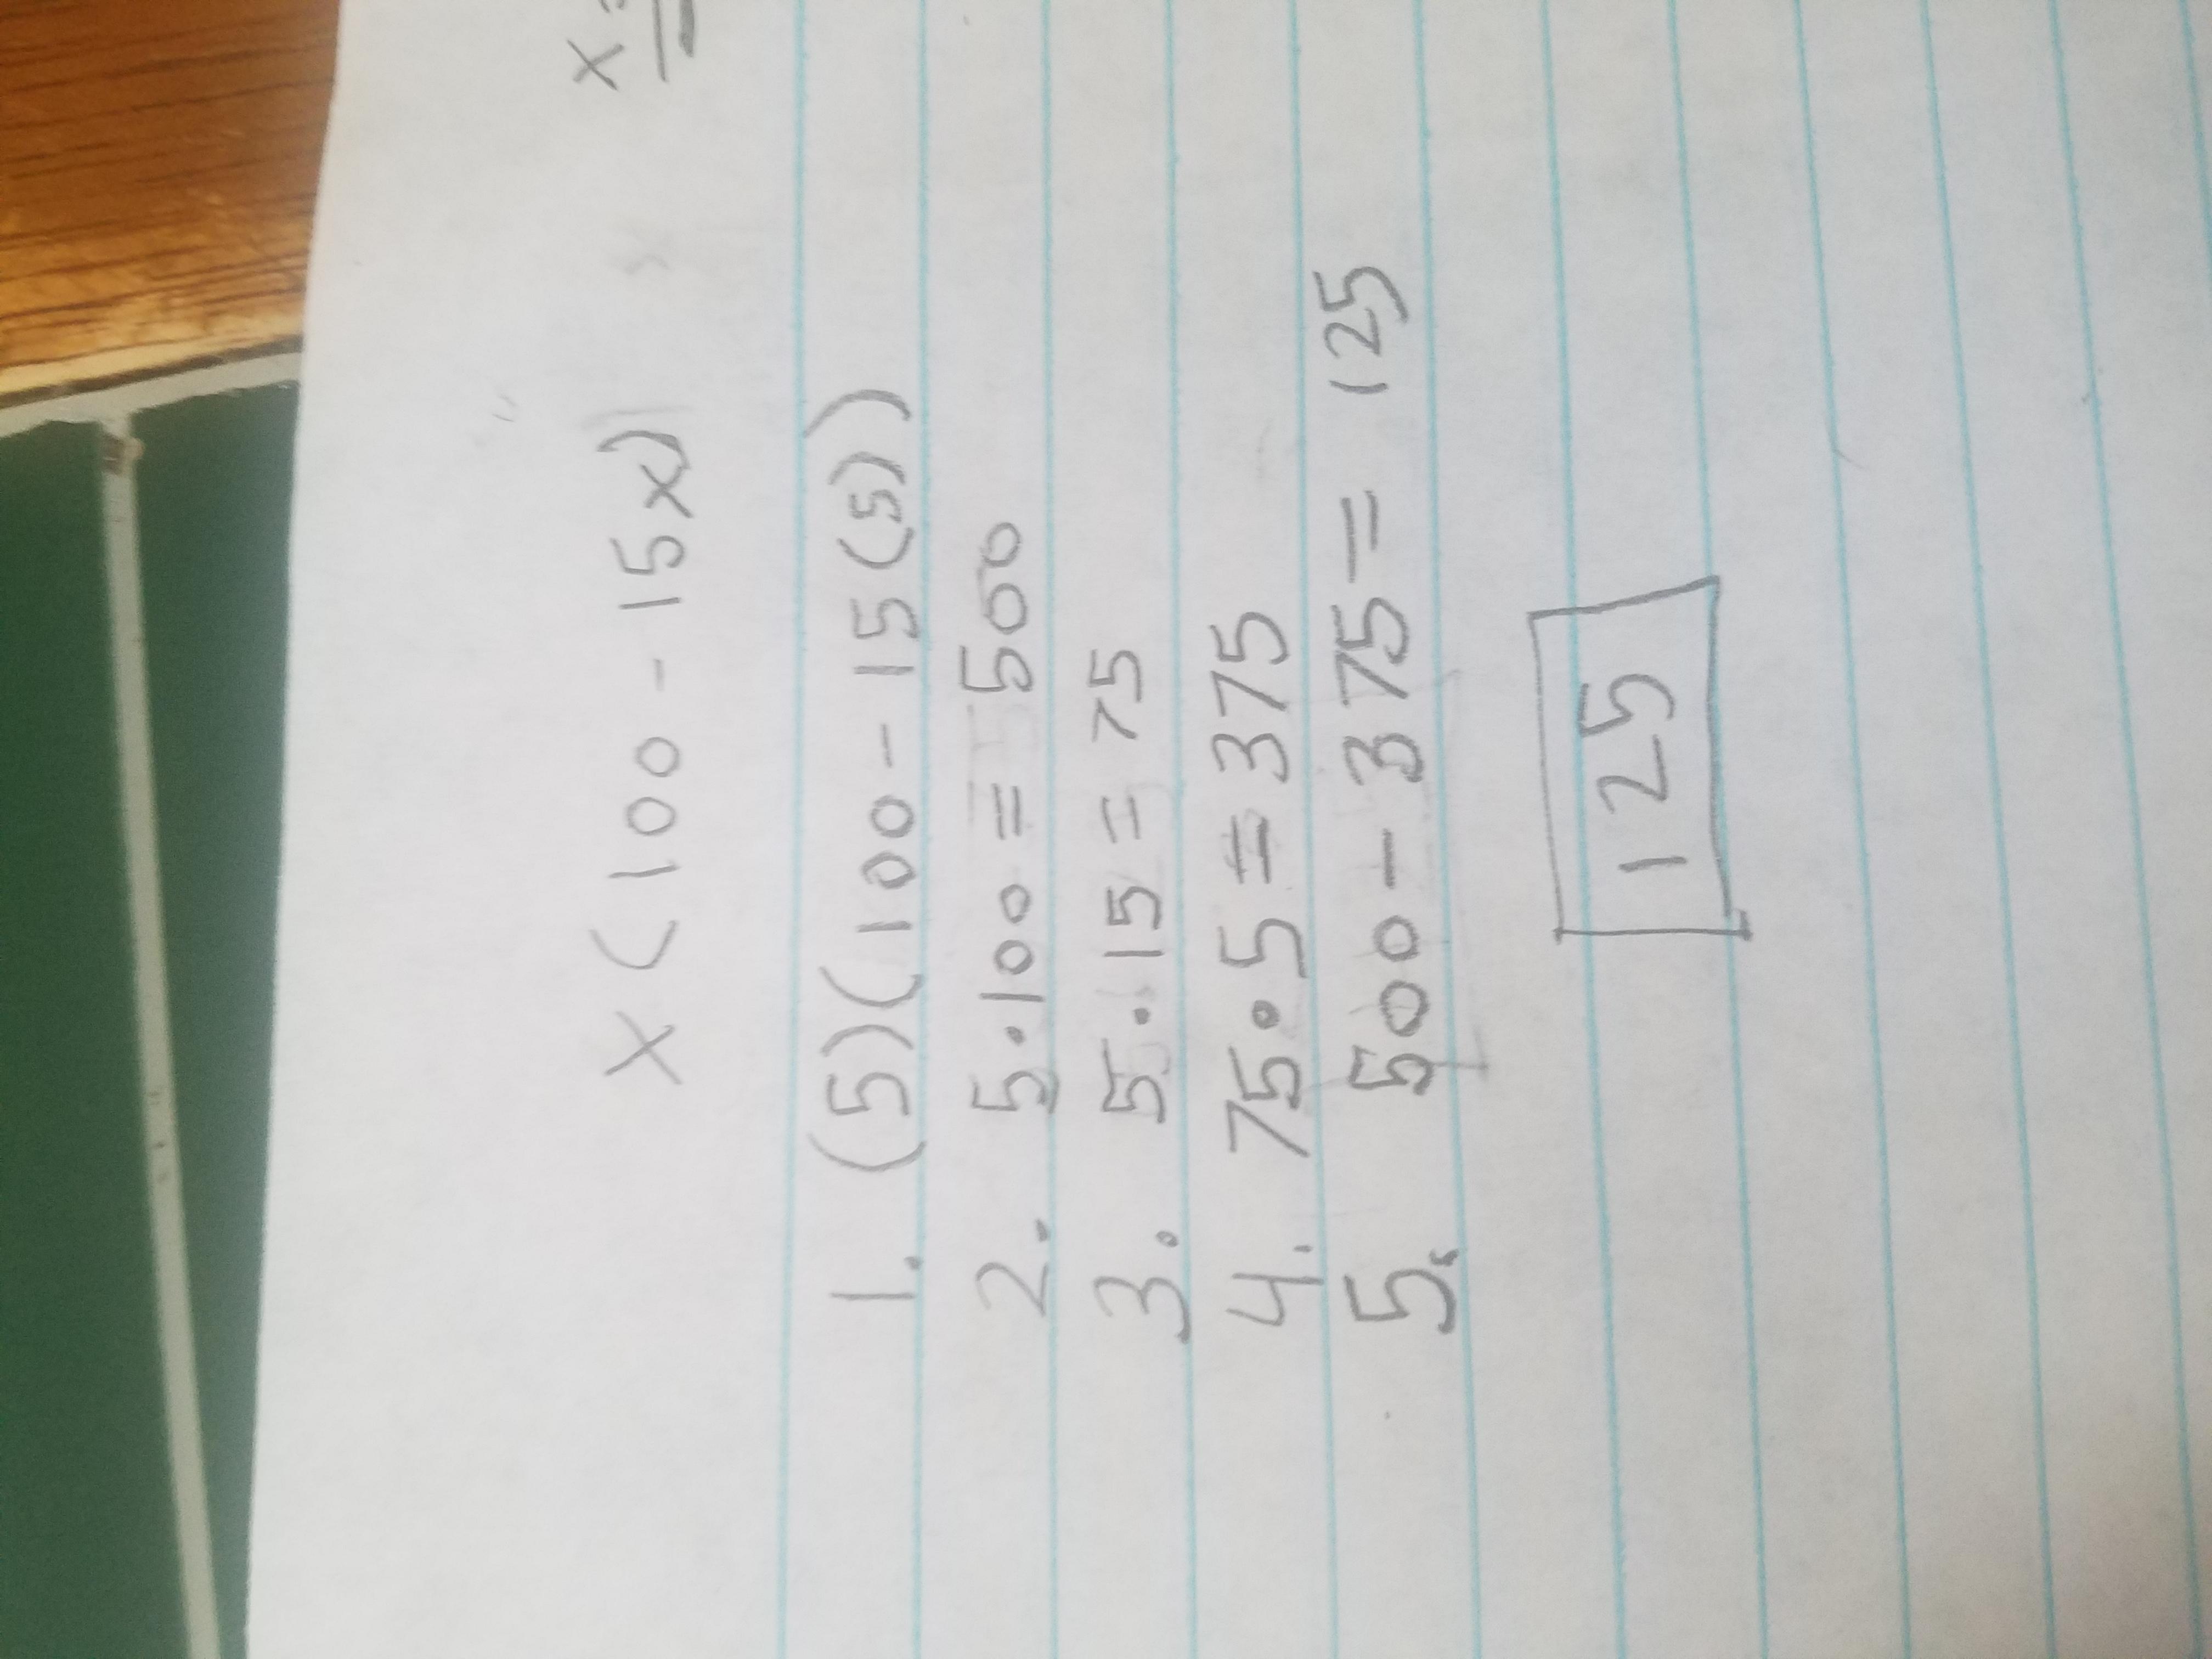 x(100-15x) x=
1. (5)(100-15(5))
2. 5·100=500
3. 5·15=75
4. 75·5=375
5. 500-375= 125
125